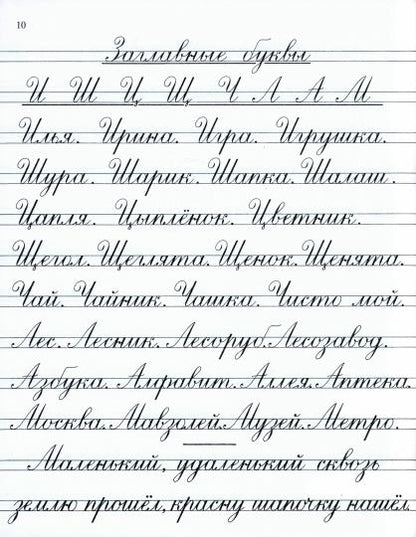 10
Заглавные буквы
И Ш Ц Щ Ч Л А М
Илья. Ирина. Игра. Игрушка.
Шура. Шарик. Шапка. Шалаш.
Цапля. Цыплёнок. Цветник.
Щегол. Щеглята. Щенок. Щенята.
Чай. Чайник. Чашка. Чисто мой.
Лес. Лесник. Лесоруб. Лесозавод.
Азбука. Алфавит. Аллея. Аптека.
Москва. Мавзолей. Музей. Метро.
Маленький, удаленький сквозь
землю прошёл, красну шапочку нашёл.